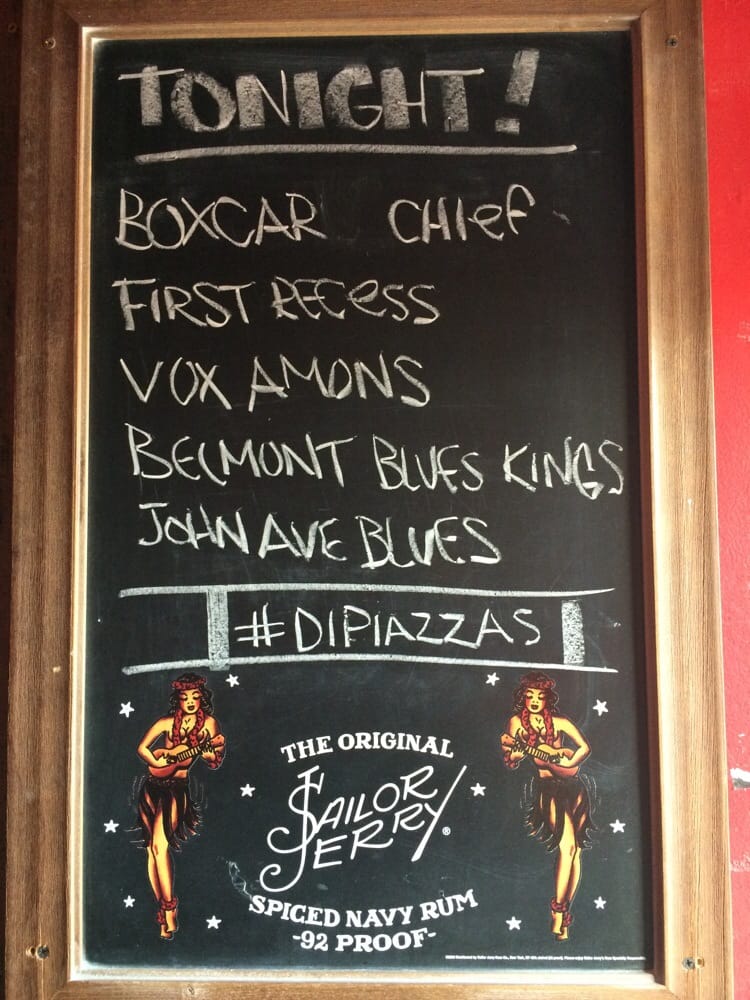 TONIGHT!
BOXCAR CHIEF
FIRST RECESS
VOX AMONS
BELMONT BLUES KINGS
JOHN AVE BLUES
#DIPIAZZAS
THE ORIGINAL
SAILOR
JERRY®
SPICED NAVY RUM
-92 PROOF-